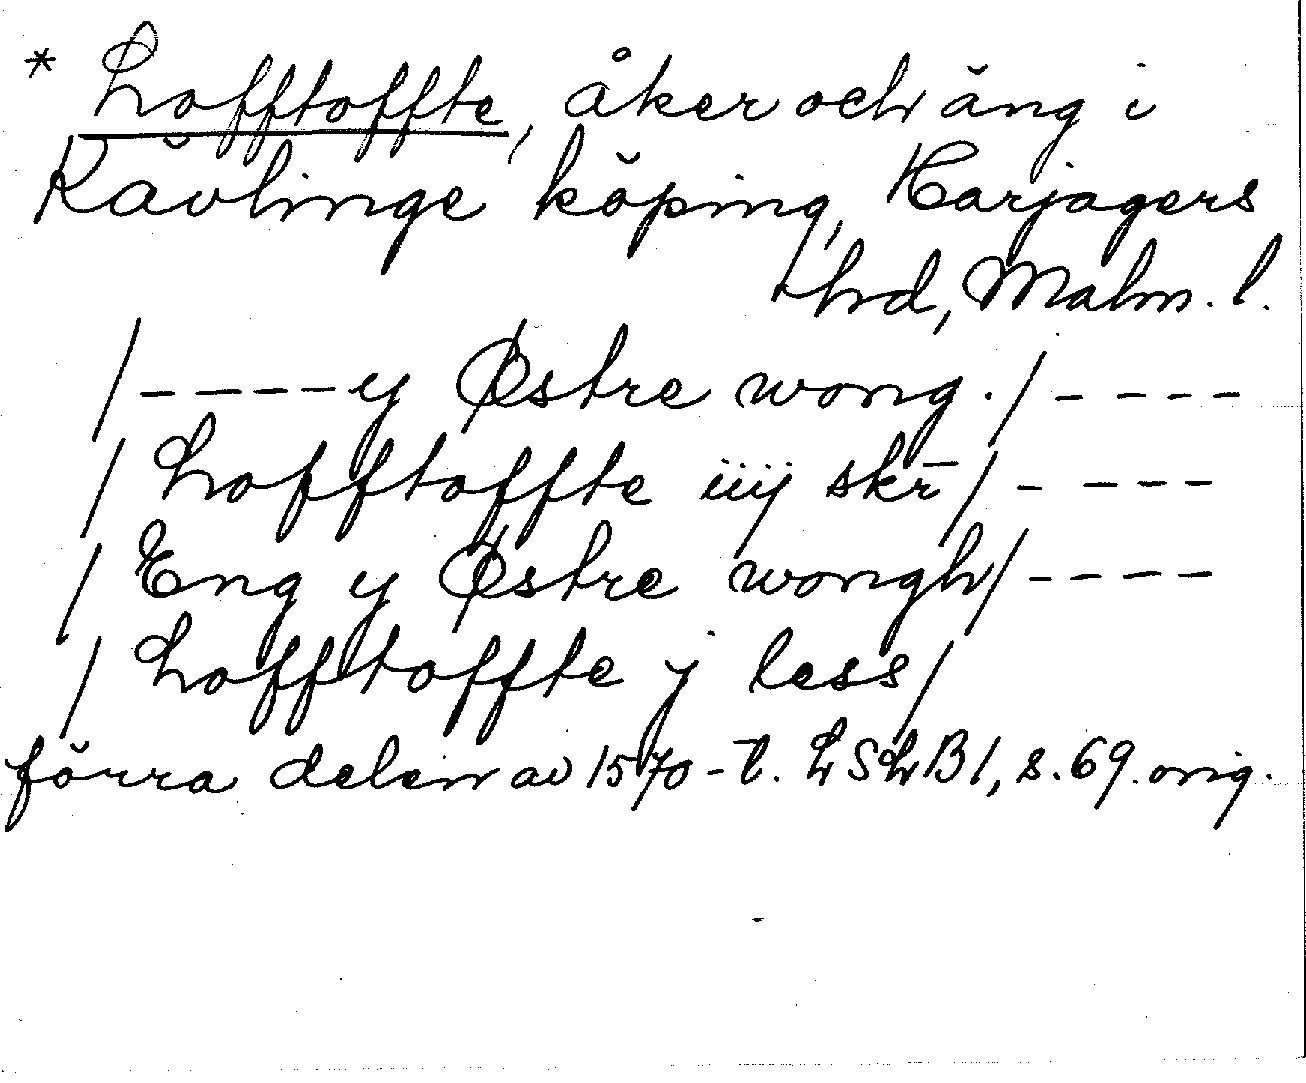 * Lofftoffte, åker och äng i
Kävlinge köping, Harjagers
hrd, Malm. l.
/----y Østre wong./----
/ hofftoffte iiij skr̄/----
/ Eng y Østre wongh/----
/ hofftoffte j less/
förra delen av 1570-t. LSLB1, s.69. orig.